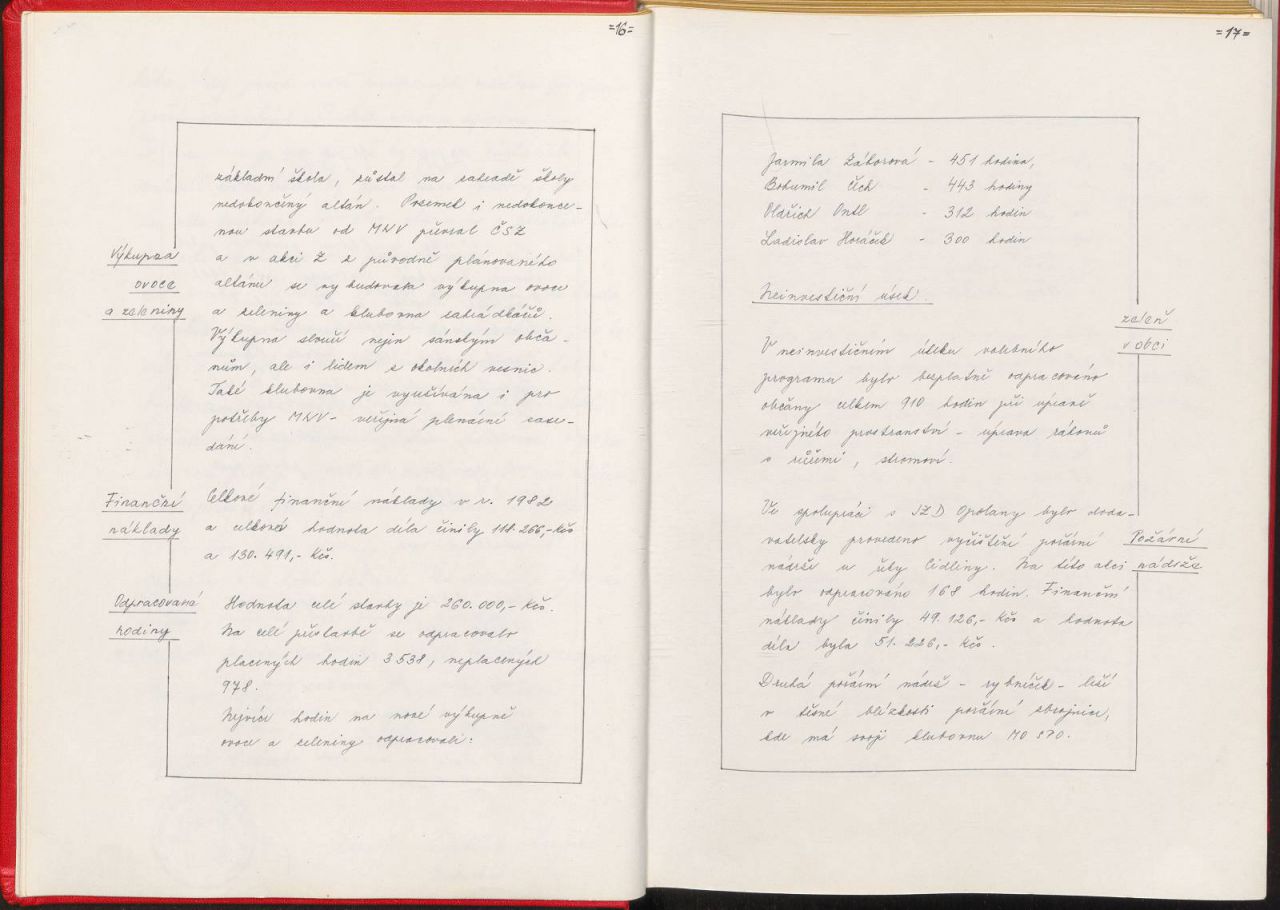 =16=
základní škola, zůstal na zahradě školy
nedokončený altán. Pozemek i nedokonče-
nou stavbu od MNV převzal ČSZ
Výkupna
ovoce
a zeleniny
a v akci Z z původně plánovaného
altánu se vybudovala výkupna ovoce
a zeleniny a klubovna zahrádkářů.
Výkupna slouží nejen sánským obča-
nům, ale i lidem z okolních vesnic.
Také klubovna je využívána i pro
potřeby MNV - veřejná plenární zase-
dání.
Finanční
náklady
Celkové finanční náklady v r. 1982
a celková hodnota díla činily 118.266,- Kčs
a 130.491,- Kčs.
Odpracované
hodiny
Hodnota celé stavby je 260.000,- Kčs.
Na celé přístavbě se odpracovalo
placených hodin 3538, neplacených
978.
Nejvíce hodin na nové výkupně
ovoce a zeleniny odpracovali:
=17=
Jarmila Záhorová - 451 hodina,
Bohumil Čech - 443 hodiny
Oldřich Ontl - 312 hodin
Ladislav Horáček - 300 hodin
Neinvestiční úsek.
zeleň
v obci
V neinvestičním úseku volebního
programu bylo bezplatně odpracováno
občany celkem 910 hodin při úpravě
veřejného prostranství - úprava záhonů
s růžemi, stromoví.
Ve spolupráci s JZD Opolany bylo doda-
vatelsky provedeno vyčištění požární
Požární
nádrže
nádrže u řeky Cidliny. Na této akci
bylo odpracováno 168 hodin. Finanční
náklady činily 49.126,- Kčs a hodnota
díla byla 51.226,- Kčs.
Druhá požární nádrž - rybníček - leží
v těsné blízkosti požární zbrojnice,
kde má svoji klubovnu MO SPO.